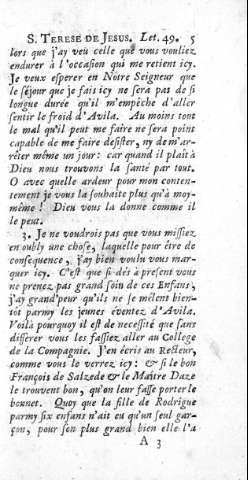 S. TERESE DE JESUS. Let. 49. 5
lors que j'ay veu celle que vous vouliez
endurer à l'occasion qui me retient icy.
Je veux esperer en Nôtre Seigneur que
le séjour que je fais icy ne sera pas de si
longue durée qu'il m'empêche d'aller
sentir le froid d'Avila. Au moins tout
le mal qu'il peut me faire ne sera point
capable de me faire desister, ny de m'ar-
rêter même un jour: car quand il plait à
Dieu nous trouvons la santé par tout.
O avec quelle ardeur pour mon conten-
tement je vous la souhaite plus qu'à moy-
même! Dieu vous la donne comme il
le peut.
3. Je ne voudrois pas que vous missiez
en oubly une chose, laquelle pour être de
consequence, j'ay bien voulu vous mar-
quer icy. C'est que si dés à present vous
ne prenez pas grand soin de ces Enfans,
j'ay grand'peur qu'ils ne se mêlent bien-
tôt parmy les jeunes éventez d'Avila.
Voilà pourquoy il est de necessité que sans
differer vous les fassiez aller au College
de la Compagnie. J'en écris au Recteur,
comme vous le verrez icy: & si le bon
François de Salzede & le Maître Daze
le trouvent bon, qu'on leur fasse porter le
bonnet. Quoy que la fille de Rodrigue
parmy six enfans n'ait eu qu'un seul gar-
çon, pour son plus grand bien elle l'a
A 3